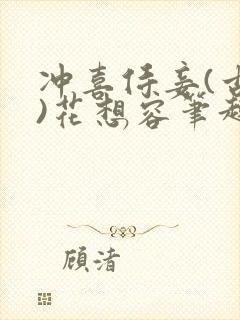 冲喜侍妾(古
)花想容笔趣
顾渚